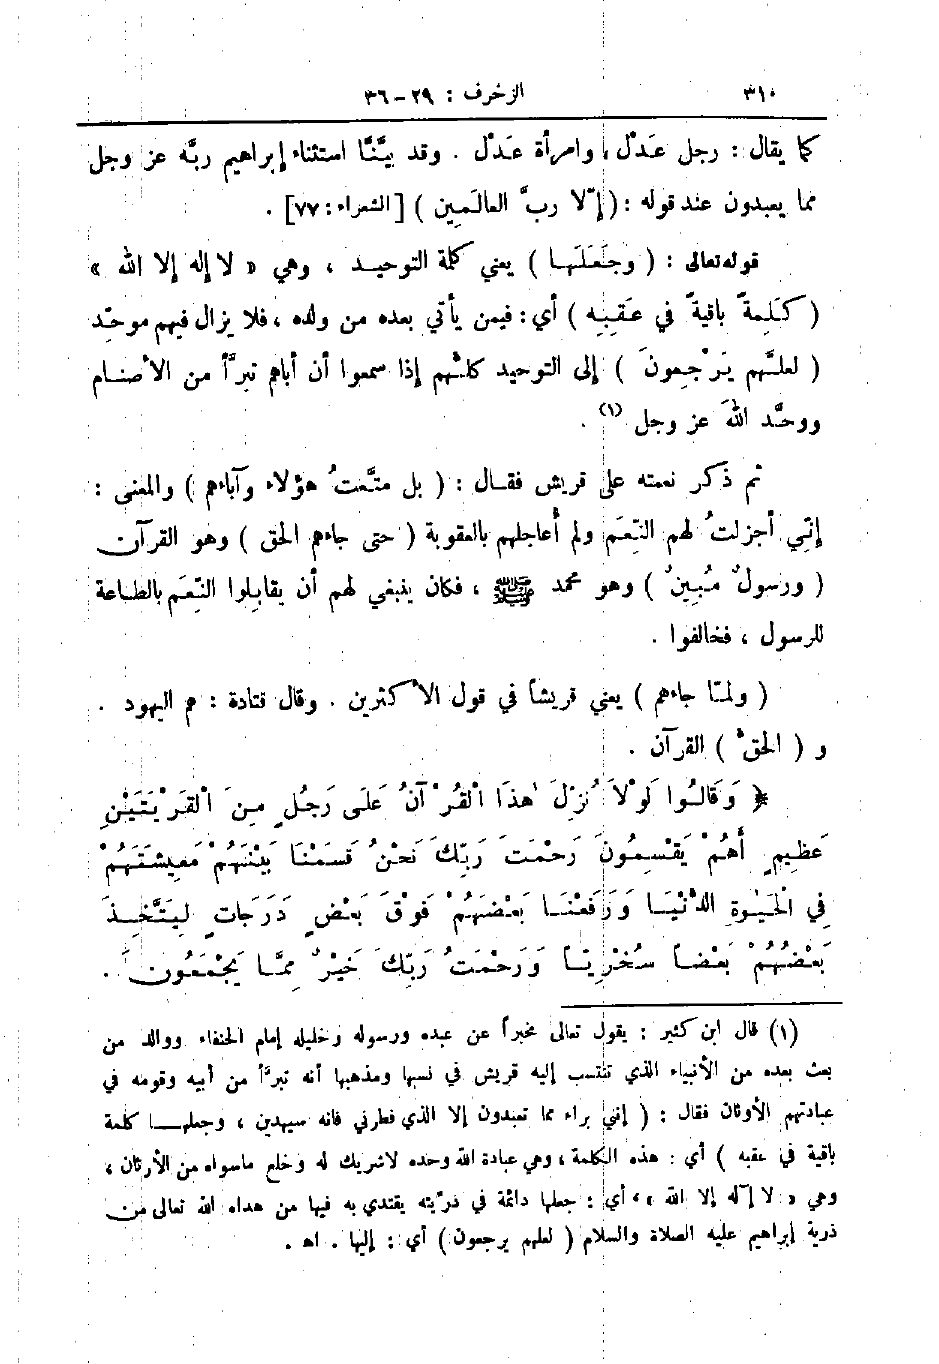 ٣١٠ الزخرف : ٢٩ – ٣٦
كما يقال : رجل عَدْل ، وامرأة عَدْل . وقد بيَّنَّا استثناء إبراهيم ربَّه عز وجل
مما يعبدون عند قوله : ( إلّا ربَّ العالَمِين ) [ الشعراء : ٧٧ ] .
قوله تعالى : ( وجَعَلَها ) يعني كلمة التوحيد ، وهي « لا إله إلا الله »
( كَلِمةً باقيةً في عَقِبِه ) أي : فيمن يأتي بعده من ولده ، فلا يزال فيهم موحِّد
( لعلَّهم يَرْجِعونَ ) إلى التوحيد كلُّهم إذا سمعوا أن أباهم تبرَّأ من الأصنام
ووحَّد اللهَ عز وجل (١) .
ثم ذكر نعمته على قريش فقال : ( بل متَّعتُ هؤلاء وآباءهم ) والمعنى :
إنِّي أجزلتُ لهم النِّعَم ولم أُعاجلهم بالعقوبة ( حتى جاءهم الحق ) وهو القرآن
( ورسولٌ مُبِينٌ ) وهو محمد ﷺ ، فكان ينبغي لهم أن يقابِلوا النِّعَم بالطاعة
للرسول ، فخالفوا .
( ولمّا جاءهم ) يعني قريشاً في قول الأكثرين . وقال قتادة : هم اليهود .
و ( الحقُّ ) القرآن .
﴿ وَقَالُوا لَوْلَا نُزِّلَ هٰذَا الْقُرْآنُ عَلَى رَجُلٍ مِنَ الْقَرْيَتَيْنِ
عَظِيمٍ أَهُمْ يَقْسِمُونَ رَحْمَتَ رَبِّكَ نَحْنُ قَسَمْنَا بَيْنَهُمْ مَعِيشَتَهُمْ
فِي الْحَيٰوةِ الدُّنْيَا وَرَفَعْنَا بَعْضَهُمْ فَوْقَ بَعْضٍ دَرَجَاتٍ لِيَتَّخِذَ
بَعْضُهُمْ بَعْضاً سُخْرِيّاً وَرَحْمَتُ رَبِّكَ خَيْرٌ مِمَّا يَجْمَعُونَ .
(١) قال ابن كثير : يقول تعالى مخبراً عن عبده ورسوله وخليله إمام الحنفاء ووالد من
بعث بعده من الأنبياء الذي تنتسب إليه قريش في نسبها ومذهبها أنه تبرَّأ من أبيه وقومه في
عبادتهم الأوثان فقال : ( إنني براء مما تعبدون إلا الذي فطرني فانه سيهدين ، وجعلها كلمة
باقية في عقبه ) أي : هذه الكلمة ، وهي عبادة الله وحده لاشريك له وخلع ماسواه من الأوثان ،
وهي « لا إله إلا الله » ، أي : جعلها دائمة في ذرّيته يقتدي به فيها من هداه الله تعالى من
ذرية إبراهيم عليه الصلاة والسلام ( لعلهم يرجعون ) أي : إليها . اه .